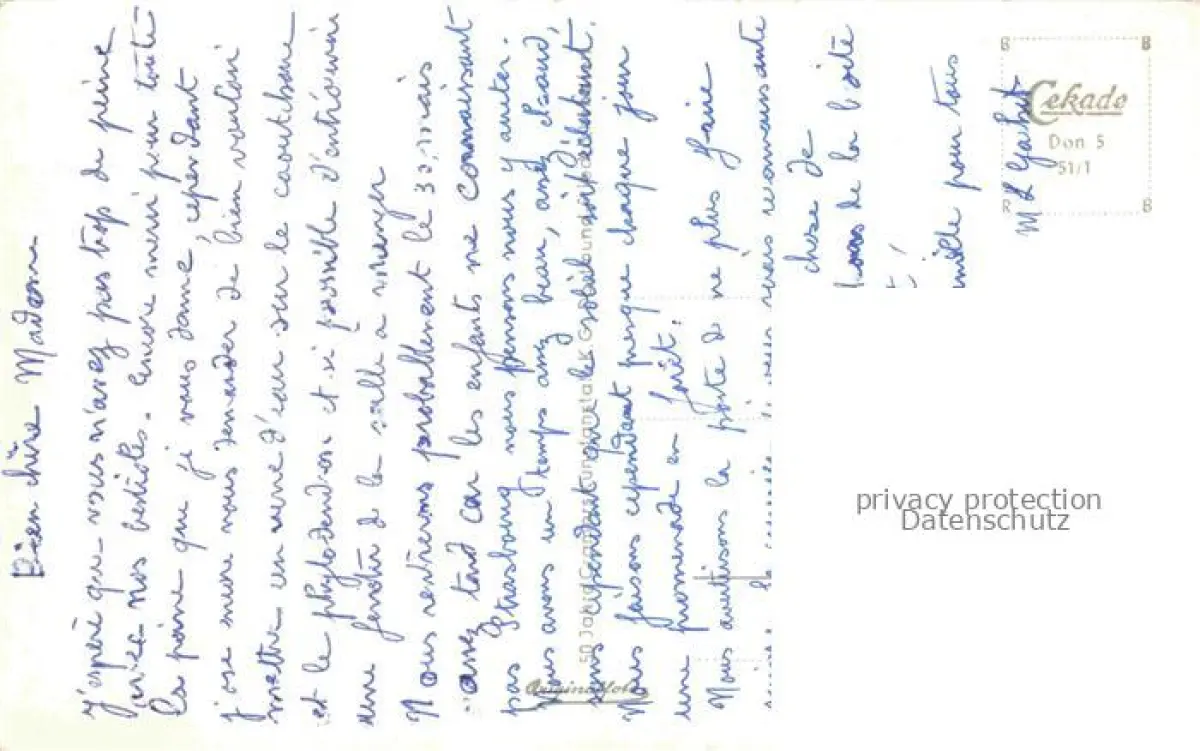 Bien chère Madame
j'espère que vous n'avez pas trop de peine
avec nos bestioles. Encore merci pour toute
la peine que je vous donne, cependant
j'ose même vous demander de bien vouloir
mettre un verre d'eau sur le caoutchouc
et le phylodendron et si possible d'entrouvrir
une fenêtre de la salle à manger
Nous rentrerons probablement le 30, mais
assez tard car les enfants ne connaissant
pas Strasbourg nous pensons nous y arrêter.
Nous avons un temps assez beau, assez chaud,
sans cependant que le soleil soit éclatant.
Nous faisons cependant presque chaque jour
une promenade en forêt.
Nous avertisons la poste de ne plus faire
suivre le courrier si vous seriez reconnaissante
chose de
de la boîte
mille pour tous
M L
50 Jahre
Originalfoto
Cekade
Don 5
51/1
B
B
R
B
privacy protection
Datenschutz